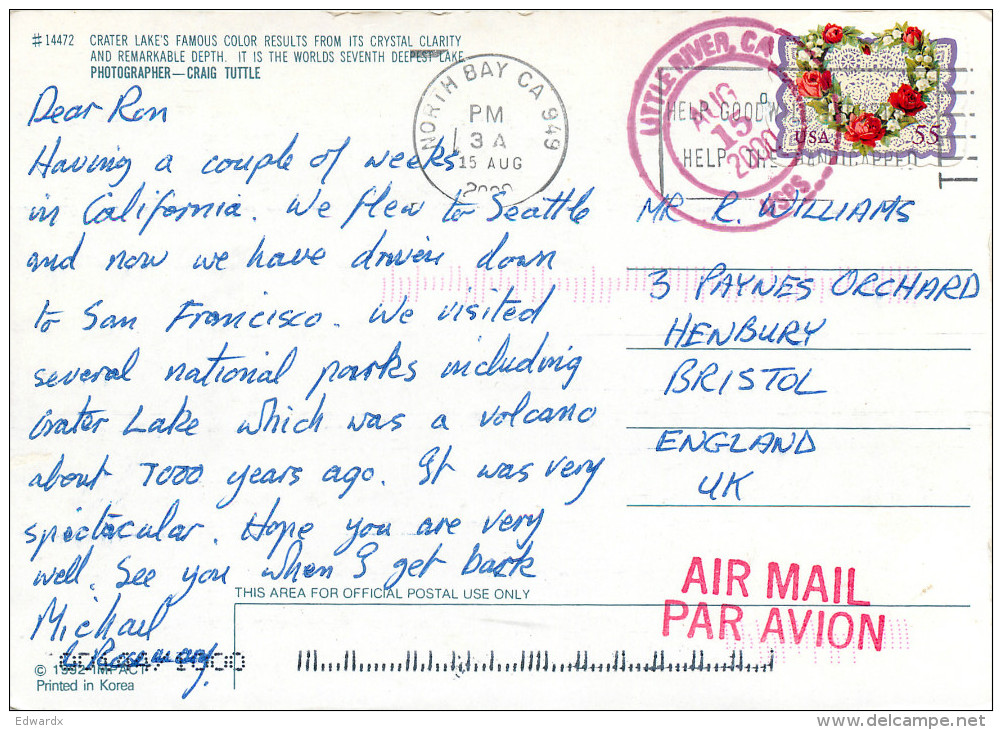 #14472 CRATER LAKE'S FAMOUS COLOR RESULTS FROM ITS CRYSTAL CLARITY
AND REMARKABLE DEPTH. IT IS THE WORLDS SEVENTH DEEPEST LAKE.
PHOTOGRAPHER—CRAIG TUTTLE
NORTH BAY CA 949
PM
3A
15 AUG
2000
LITTLE RIVER, CA
AUG
15
2000
USPS
HELP GOODW
HELP THE HANDICAPPED
USA 55
Dear Ron
Having a couple of weeks
in California. We flew to Seattle
and now we have driven down
to San Francisco. We visited
several national parks including
Crater Lake which was a volcano
about 7000 years ago. It was very
spectacular. Hope you are very
well. See you when I get back
Michael
& Rosemary.
MR. R. WILLIAMS
3 PAYNES ORCHARD
HENBURY
BRISTOL
ENGLAND
UK
AIR MAIL
PAR AVION
THIS AREA FOR OFFICIAL POSTAL USE ONLY
© 1992 IMPACT
Printed in Korea
Edwardx
delcampe.net